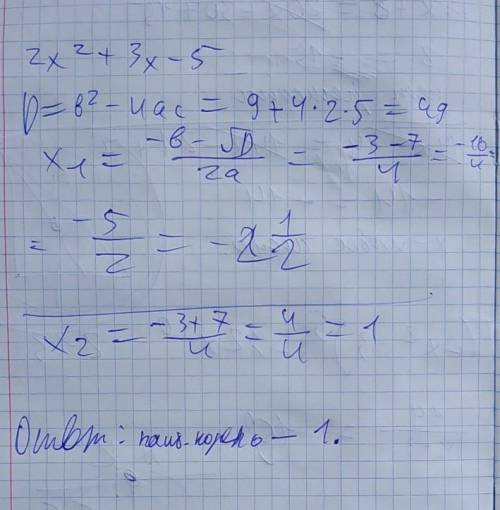 2x² + 3x - 5
D = в² - 4ac = 9 + 4·2·5 = 49
x₁ = (-в - √D)/2a = (-3 - 7)/4 = -10/4 =
= -5/2 = -2 1/2
x₂ = (-3 + 7)/4 = 4/4 = 1
Ответ: наиб. корень — 1.